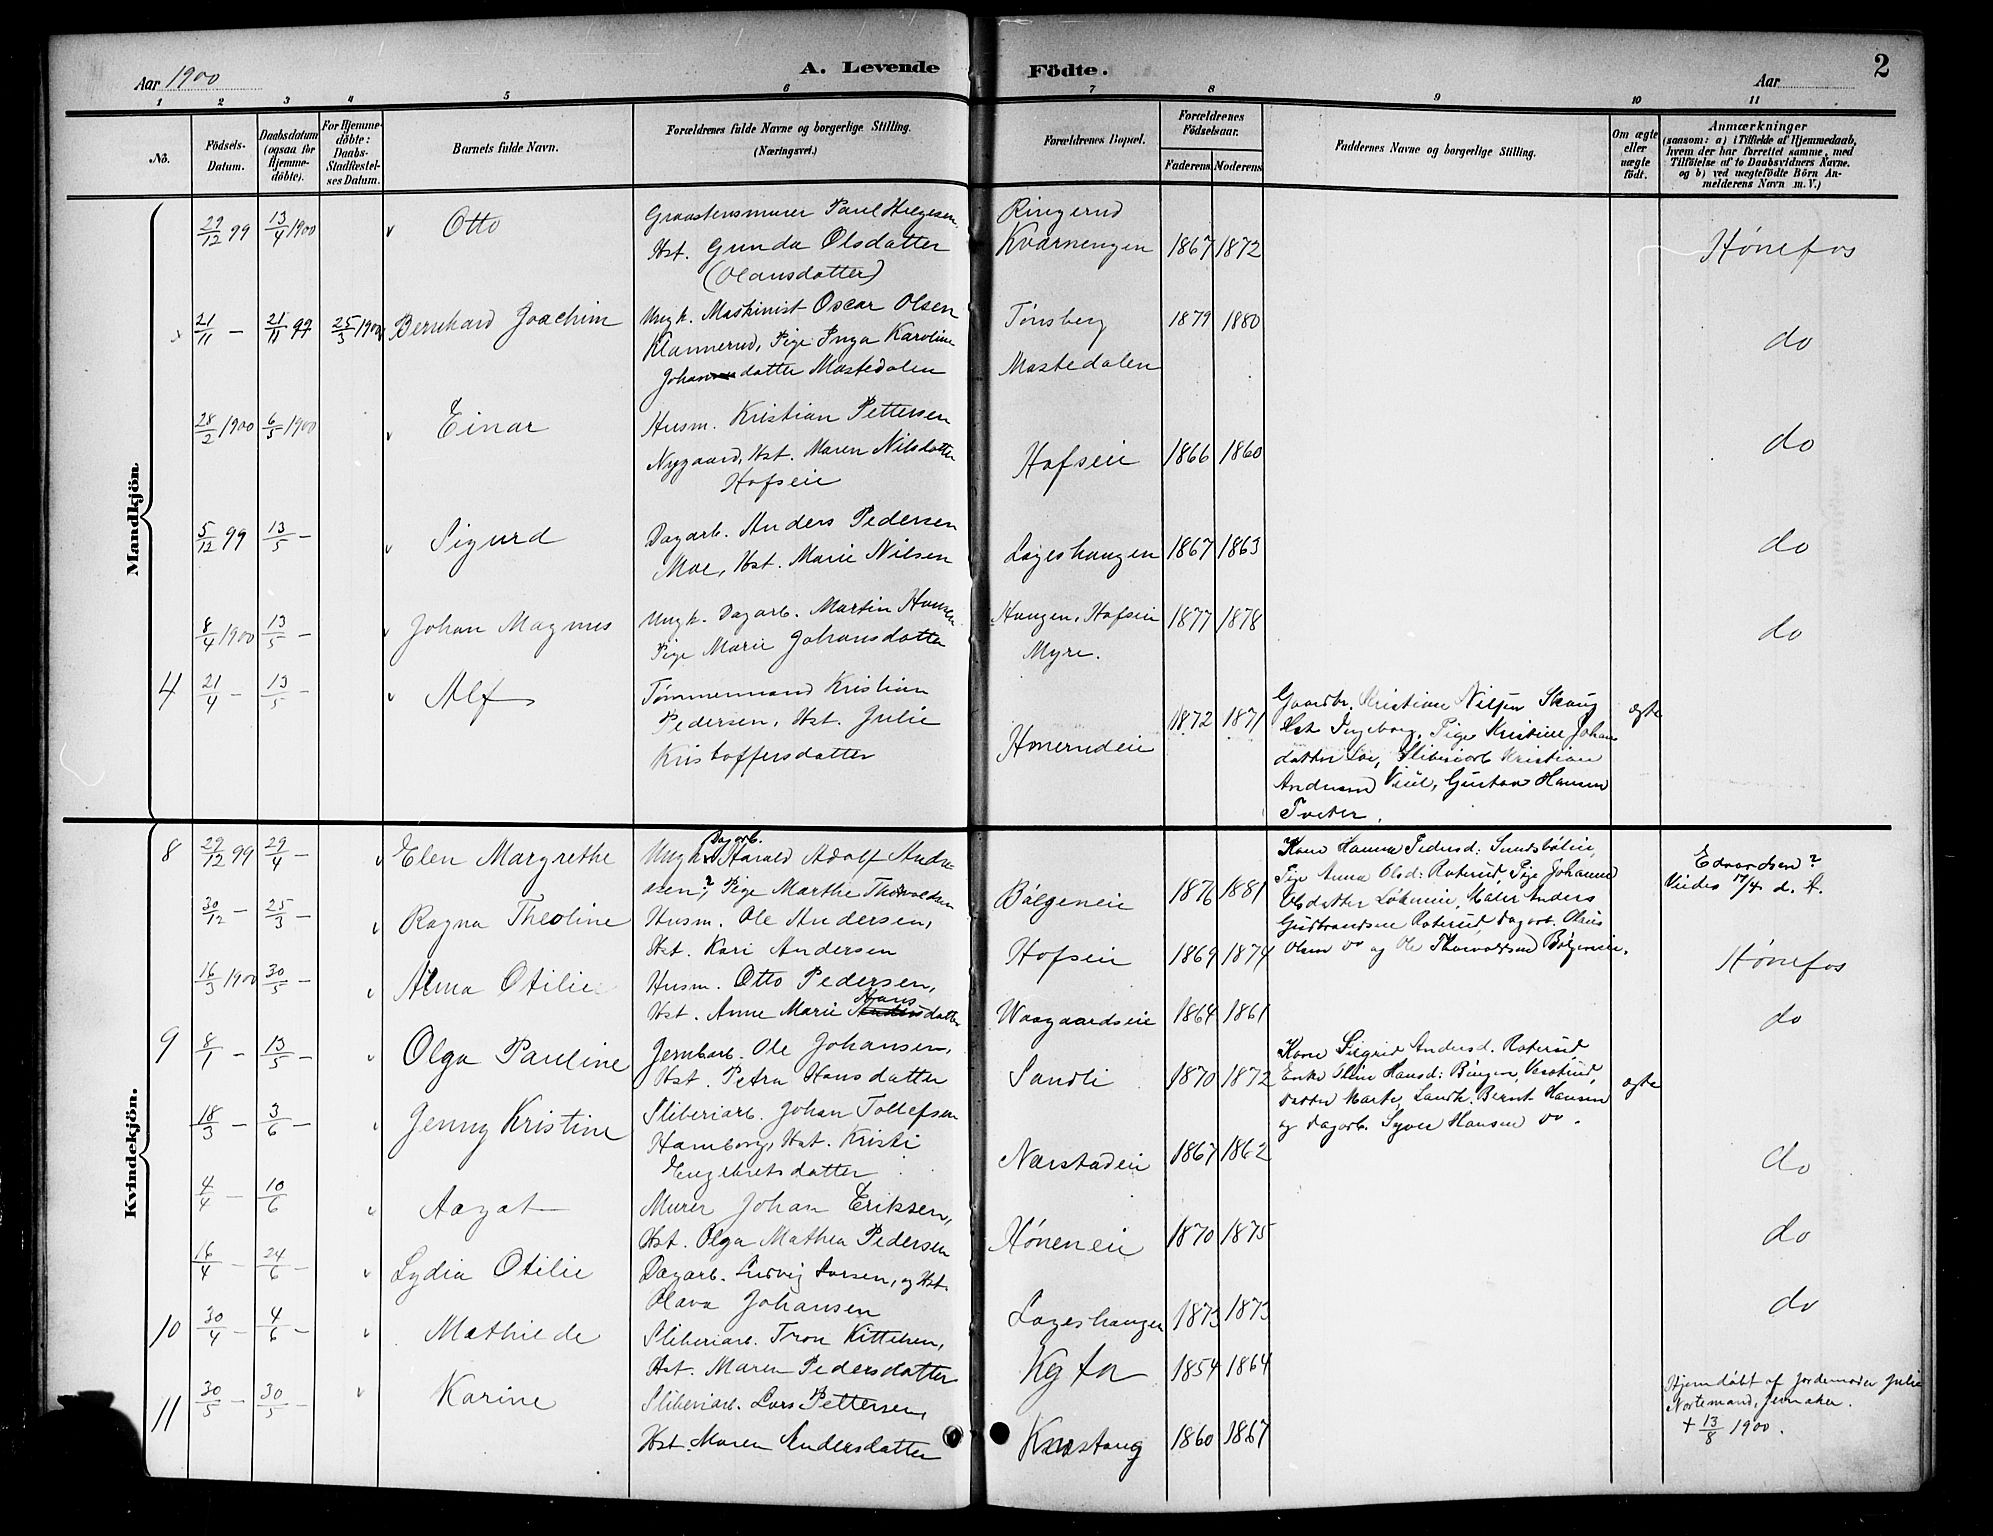 Aar 1900
A. Levende
Födte.
Aar
2
1 2 3 4 5 6 7 8 9 10 11
No.
Födsels-
Datum.
Daabsdatum
(ogsaa for
Hjemme-
döbte).
For Hjemme-
döbte:
Daabs-
Stadfæstel-
ses Datum.
Barnets fulde Navn.
Forældrenes fulde Navne og borgerlige Stilling.
(Næringsvei.)
Forældrenes Bopæl.
Forældrenes
Födselsaar.
Faderens. Moderens.
Faddernes Navne og borgerlige Stilling.
Om ægte
eller
uægte
födt.
Anmærkninger
(saasom: a) i Tilfælde af Hjemmedaab,
hvem der har forrettet samme, med
Tilföielse af to Daabsvidners Navne.
og b) ved uægtefödte Börn An-
melderens Navn m. V.)
Mandkjön.
29/12 99 13/4 1900 Otto
Graastensmurer Paul Helgesen
Hst. Gunda Olsdatter
(Olausdatter)
Ringerud
Kvarnengen 1867 1872
Hønefos
x 21/11 - 21/11 99 25/3 1900 Bernhard Joachim
Ungk. Maskinist Oscar Olsen
Klannerud, Pige Inga Karoline
Johannsdatter Mastedalen
Tønsberg 1879 1880
Mastedalen
do
28/2 1900 6/5 1900 Einar
Husm. Kristian Pettersen
Nygaard, Hst. Maren Nilsdatter
Hofseie
Hofseie 1866 1860
do
5/12 99 13/5 - Sigurd
Dagarb. Anders Pedersen
Moe, Hst. Marie Nilsen
Lageshaugen 1867 1863
do
8/4 1900 13/5 - Johan Magnus
Ungk. Dagarb. Martin Hansen
Pige Marie Johansdatter
Haugen, Hofseie 1877 1878
Myre.
do
4 21/4 - 13/5 - Alf
Tømmermand Kristian
Pedersen, Hst. Julie
Kristoffersdatter
Hønerudeie 1872 1871
Gaardbr. Kristian Nilsen Skaug
Hst Ingeborg, Pige Kristine Johans
datter Lie, Sliberiarb Kristian
Andersen Viul, Gustav Hansen
Tveter.
ægte
Kvindekjön.
8 29/12 99 29/4 - Elen Margrethe
Dagarb.
Ungk. Harald Adolf Andre-
asen,? Pige Marthe Thorvaldsen
Bølgeneie 1876 1881
Kone Hanna Pedersd: Sundbølin,
Pige Anna Olsd: Roterud, Pige Johanne
Olsdatter Løkeneie, Maler Anders
Gudbrandsen Roterud, Dagarb. Olaus
Olsen do og Ole Thorvaldsen Bølgeneie.
Edvardsen?
Viedes 17/4 d. A.
30/12 - 25/3 - Ragna Theoline
Husm. Ole Andersen,
Hst. Kari Andersen
Hofseie 1869 1874
Hønefos
16/3 1900 30/5 - Alma Otilie
Husm. Otto Pedersen,
Hst. Anne Marie Hansdatter
Waagaardseie 1864 1861
do
9 8/1 - 13/5 - Olga Pauline
Jernbarb. Ole Johansen,
Hst. Petra Hansdatter
Sandli 1870 1872
Kone Sigrid Andersd. Roterud
Enke Eline Hansd: Bingen,
datter Marte, Landh. Bernt Hansen
og Dagarb. Syver Hansen do.
ægte
18/3 - 3/6 - Jenny Kristine
Sliberiarb. Johan Tollefsen
Hamborg, Hst. Kristi
Engebretsdatter
Nærstadeie 1867 1862
do
4/4 - 10/6 Aagot
Murer Johan Eriksen,
Hst. Olga Mathea Pedersen
Høneneie 1870 1875
do
16/4 - 24/6 - Lydia Otilie
Dagarb. Ludvig Larsen, og Hst.
Olava Johansen
Lageshaugen 1873 1873
do
10 30/4 - 4/6 - Mathilde
Sliberiarb. Tron Kittelsen,
Hst. Maren Pedersdatter
Kgta 1854 1864
11 30/5 - 30/5 - Karine
Sliberiarb. Lars Pettersen,
Hst. Maren Andersdatter
Knestang 1860 1867
Hjemdøbt af Jordemoder Julie
Nortemand, Jevnaker.
+ 13/8 1900.